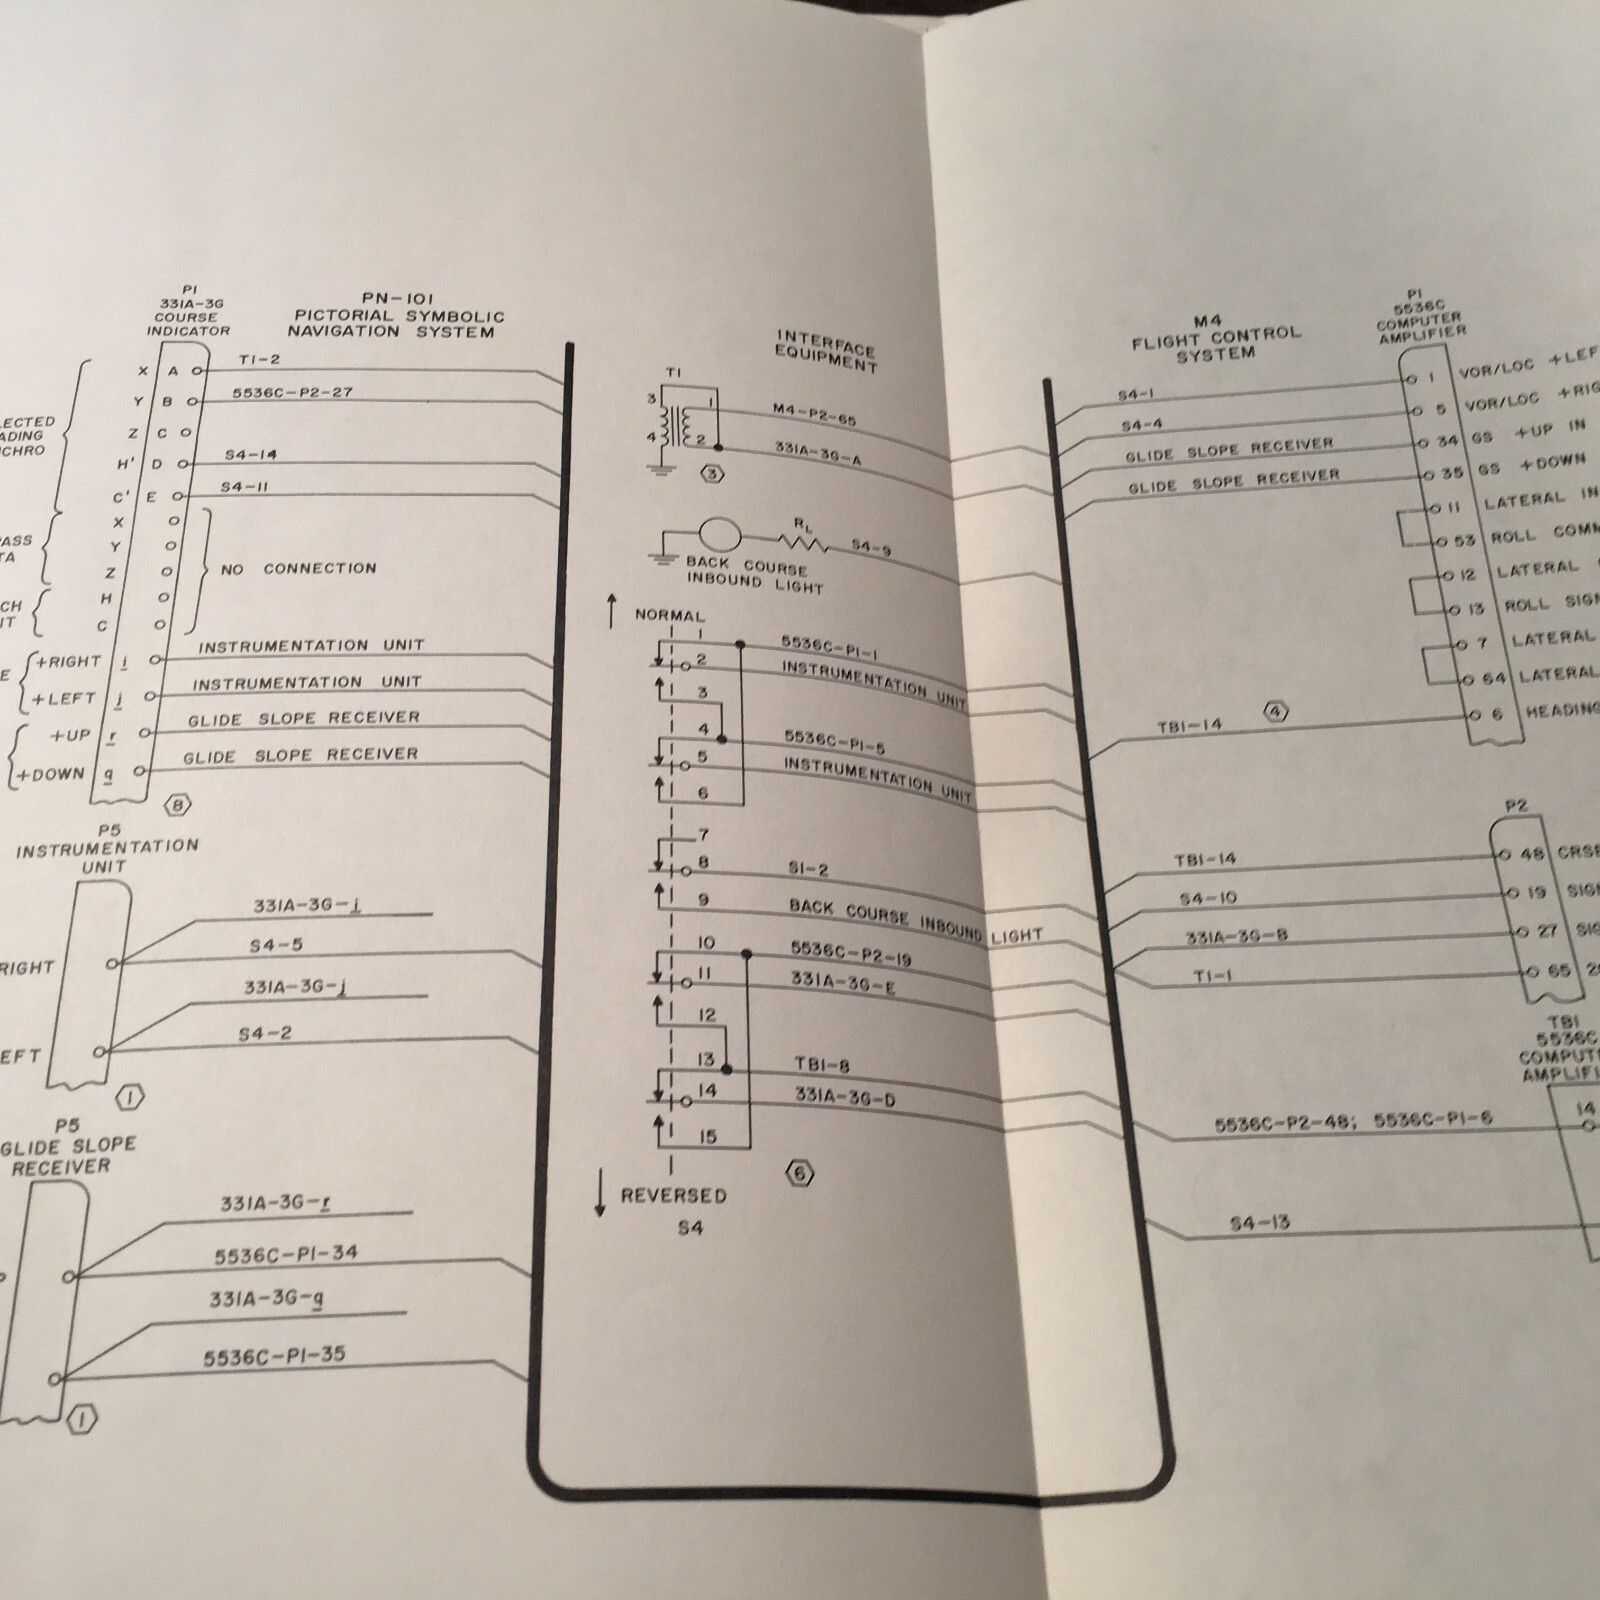 P1
331A-3G
COURSE
INDICATOR
PN-101
PICTORIAL SYMBOLIC
NAVIGATION SYSTEM
X A T1-2
Y B 5536C-P2-27
Z C
H' D S4-14
C' E S4-11
X
Y
Z
H
C
NO CONNECTION
+RIGHT i INSTRUMENTATION UNIT
+LEFT j INSTRUMENTATION UNIT
+UP r GLIDE SLOPE RECEIVER
+DOWN q GLIDE SLOPE RECEIVER
8
P5
INSTRUMENTATION
UNIT
331A-3G-i
RIGHT S4-5
331A-3G-j
S4-2
1
P5
GLIDE SLOPE
RECEIVER
331A-3G-r
5536C-P1-34
331A-3G-q
5536C-P1-35
1
INTERFACE
EQUIPMENT
T1
3 1 M4-P2-65
4 2 331A-3G-A
3
RL S4-9
BACK COURSE
INBOUND LIGHT
NORMAL
1 5536C-P1-1
2 INSTRUMENTATION UNIT
3
4 5536C-P1-5
5 INSTRUMENTATION UNIT
6
7
8 S1-2
9 BACK COURSE INBOUND LIGHT
10 5536C-P2-19
11 331A-3G-E
12
13 TB1-8
14 331A-3G-D
15
6
REVERSED
S4
M4
FLIGHT CONTROL
SYSTEM
P1
5536C
COMPUTER
AMPLIFIER
S4-1 1 VOR/LOC
S4-4 5 VOR/LOC
GLIDE SLOPE RECEIVER 34 GS +UP IN
GLIDE SLOPE RECEIVER 35 GS +DOWN
11 LATERAL
53 ROLL
12 LATERAL
13 ROLL
7 LATERAL
64 LATERAL
4
TB1-14 6 HEADING
P2
TB1-14 48
S4-10 19
331A-3G-B 27
T1-1 65
TB1
5536C
14
5536C-P2-48; 5536C-P1-6
S4-13